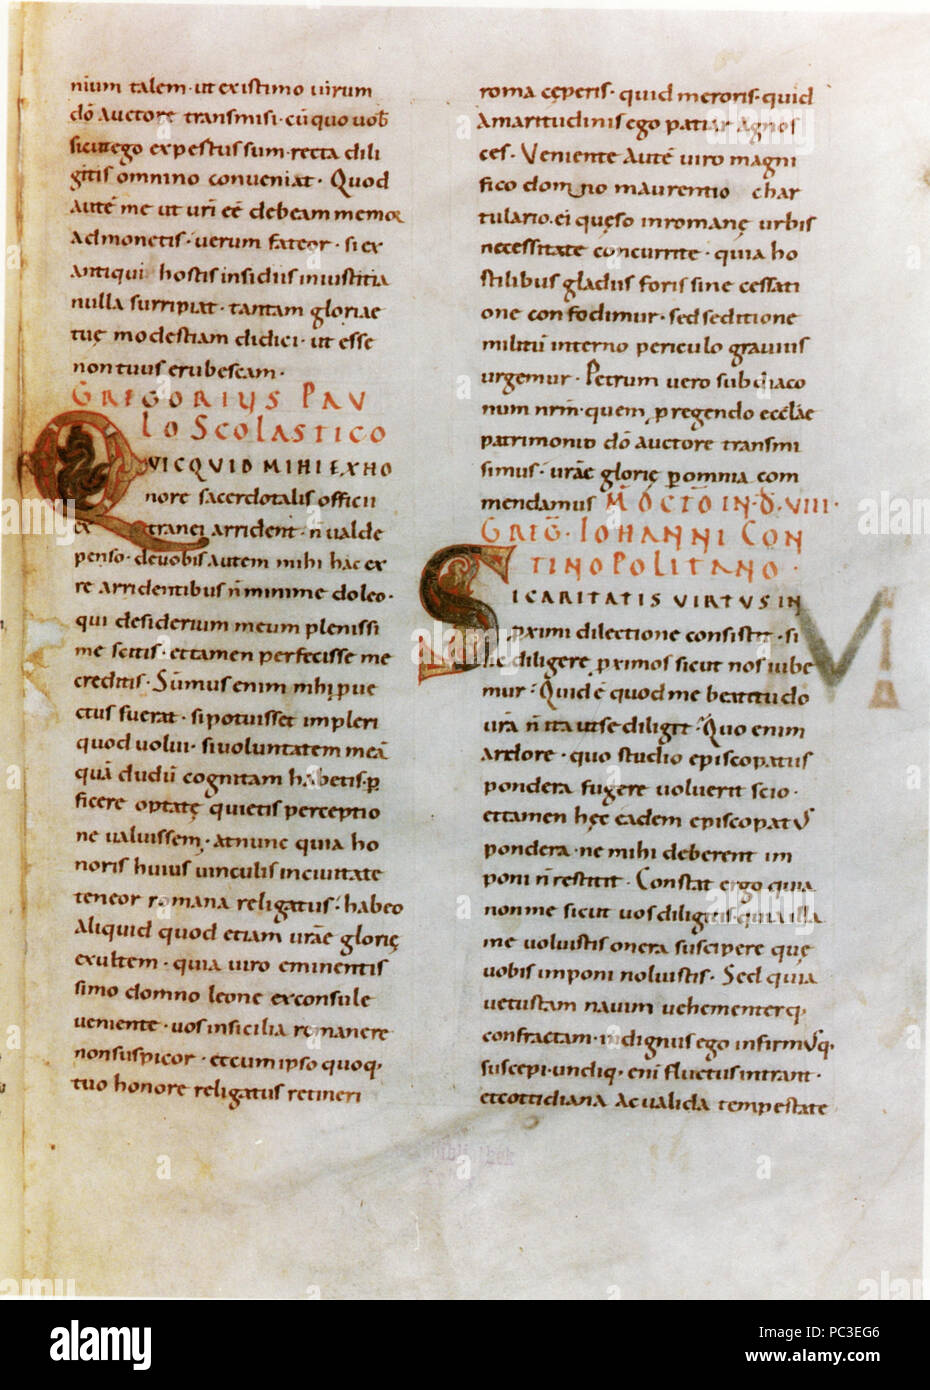 nium talem · ut existimo virum
dō auctore transmisi · cū quo vob̄
sicut ego expertus sum · recta dili
gitis omnino conveniat · Quod
autē me ut uri eē debeam memor
admonetis · uerum fateor · si ex
antiqui hostis insidiis iniustitia
nulla surripiat · tantam gloriae
tuę modestiam didici · ut esse
non tuus erubescam ·
GREGORIUS PAU
LO SCOLASTICO
QVICQVID MIHI EX HO
nore sacerdotalis officii
extranei arrident · n̄ valde
penso · de vobis autem mihi hac ex
re arridentibus n̄ minime doleo ·
qui desiderium meum plenissi
me scitis · et tamen perfecisse me
creditis · Sūmus enim mihi pve
ctus fuerat · si potuisset impleri
quod uolui · si uoluntatem meā
quā dudū cognitam habetis · p
ficere optatę quietis perceptio
ne ualuissem · at nunc quia ho
noris huius uinculis in ciuitate
teneor romana religatus · habeo
Aliquid quod etiam urāe glorię
exultem · quia uiro eminentis
simo domno leone exconsule
ueniente · uos insicilia romanere
non suspicor · et cum ipso quoq,
tuo honore religatus retineri
roma cęperis · quid meroris · quid
Amaritudinis ego patiar agnos
ces · Veniente autē uiro magni
fico domno maurentio char
tulario · ei quęso in romanę urbis
necessitate concurrite · quia ho
stilibus gladiis foris sine cessati
one confodimur · sed seditione
militū interno periculo grauius
urgemur · Petrum uero subdiaco
num nrm̄ · quem p regendo ecclāe
patrimonio dō auctore transmi
simus · urāe glorię p omnia com
mendamus M OCTO IN·D·VIII·
GREG̅· IOHANNI CON
TINOPOLITANO ·
SI CARITATIS VIRTUS IN
pximi dilectione consistit · si
sic diligere pximos sicut nos iube
mur · Quid ē quod me beatitudo
urā n̄ ita ut se diligit · Quo enim
ardore · quo studio episcopatus
pondera fugere uoluerit scio ·
et tamen hęc eadem episcopatus
pondera · ne mihi deberent im
poni n̄ restitit · Constat ergo quia
non me sicut uos diligitis · quia illa
me uoluistis onera suscipere quę
uobis imponi noluistis · Sed quia
uetustam nauim uehementerq,
confractam · indignus ego infirmusq,
suscepi · undiq, eni fluctus intrant ·
et cottidiana ac ualida tempestate
M
alamy
Image ID: PC3EG6
www.alamy.com